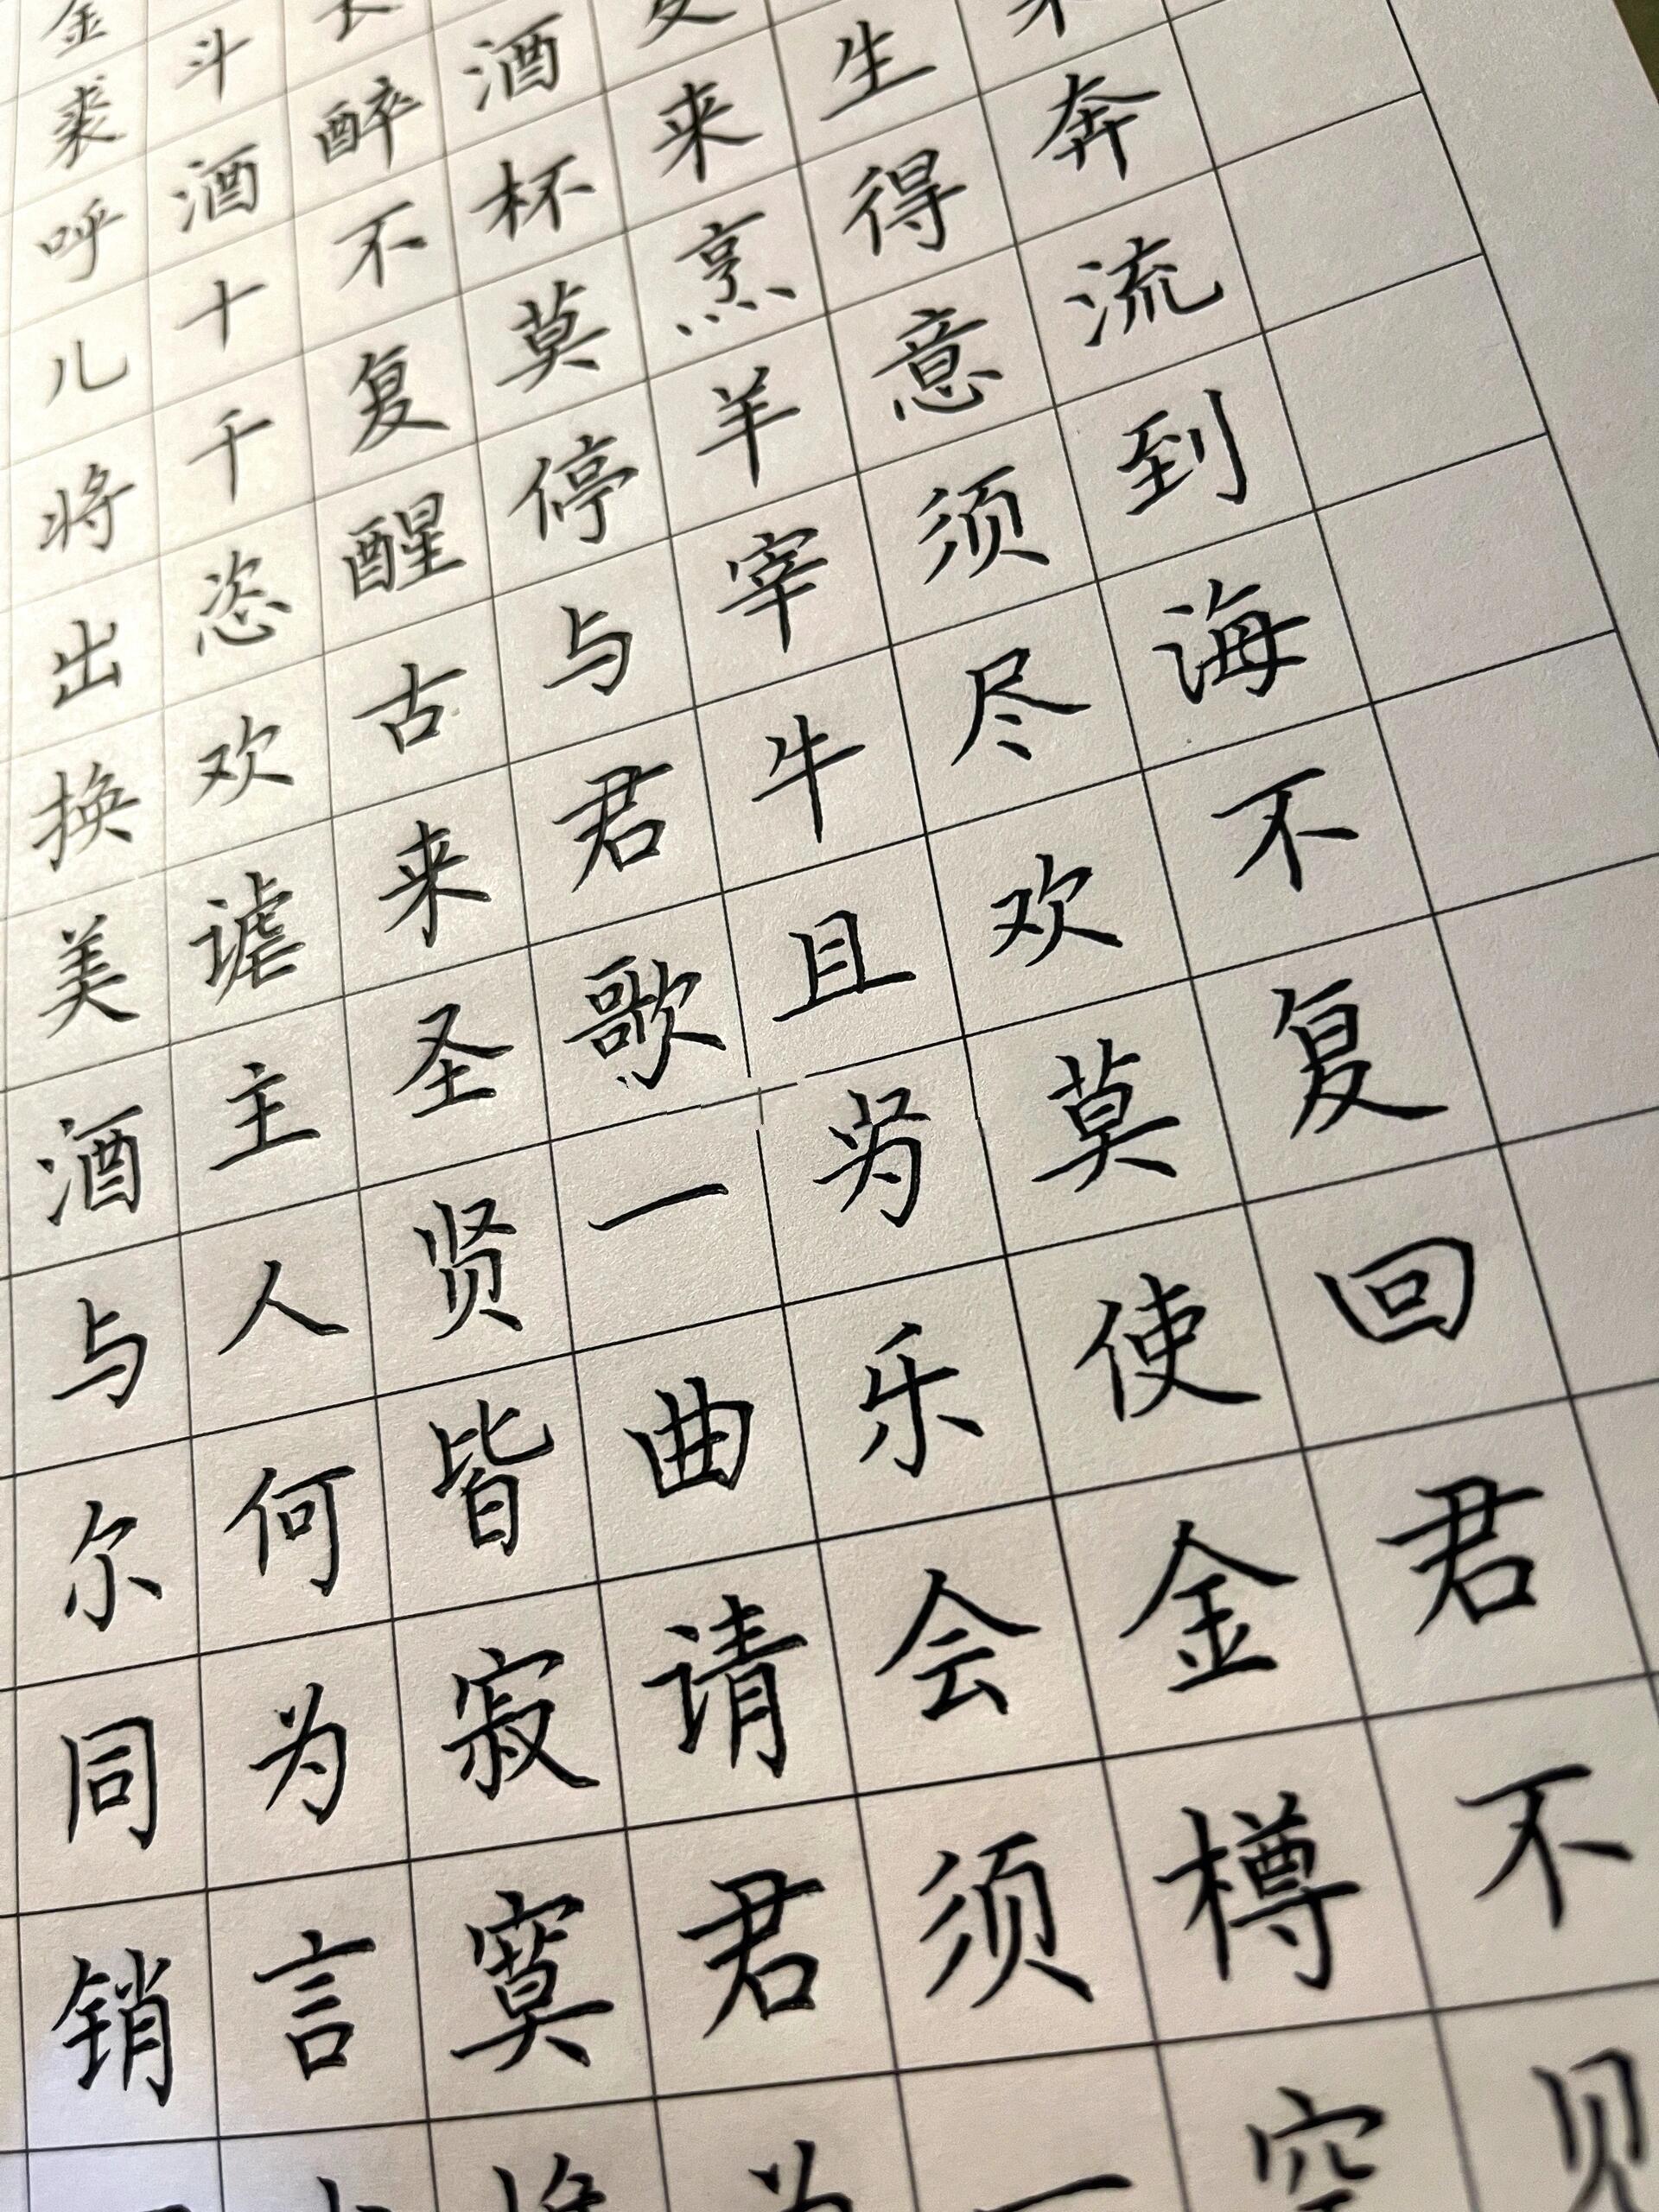 奔流到海不复回君不见
生得意须尽欢莫使金樽空
来烹羊宰牛且为乐会须一
酒杯莫停与君歌一曲请君为
醉不复醒古来圣贤皆寂寞惟
斗酒十千恣欢谑主人何为言
金裘呼儿将出换美酒与尔同销